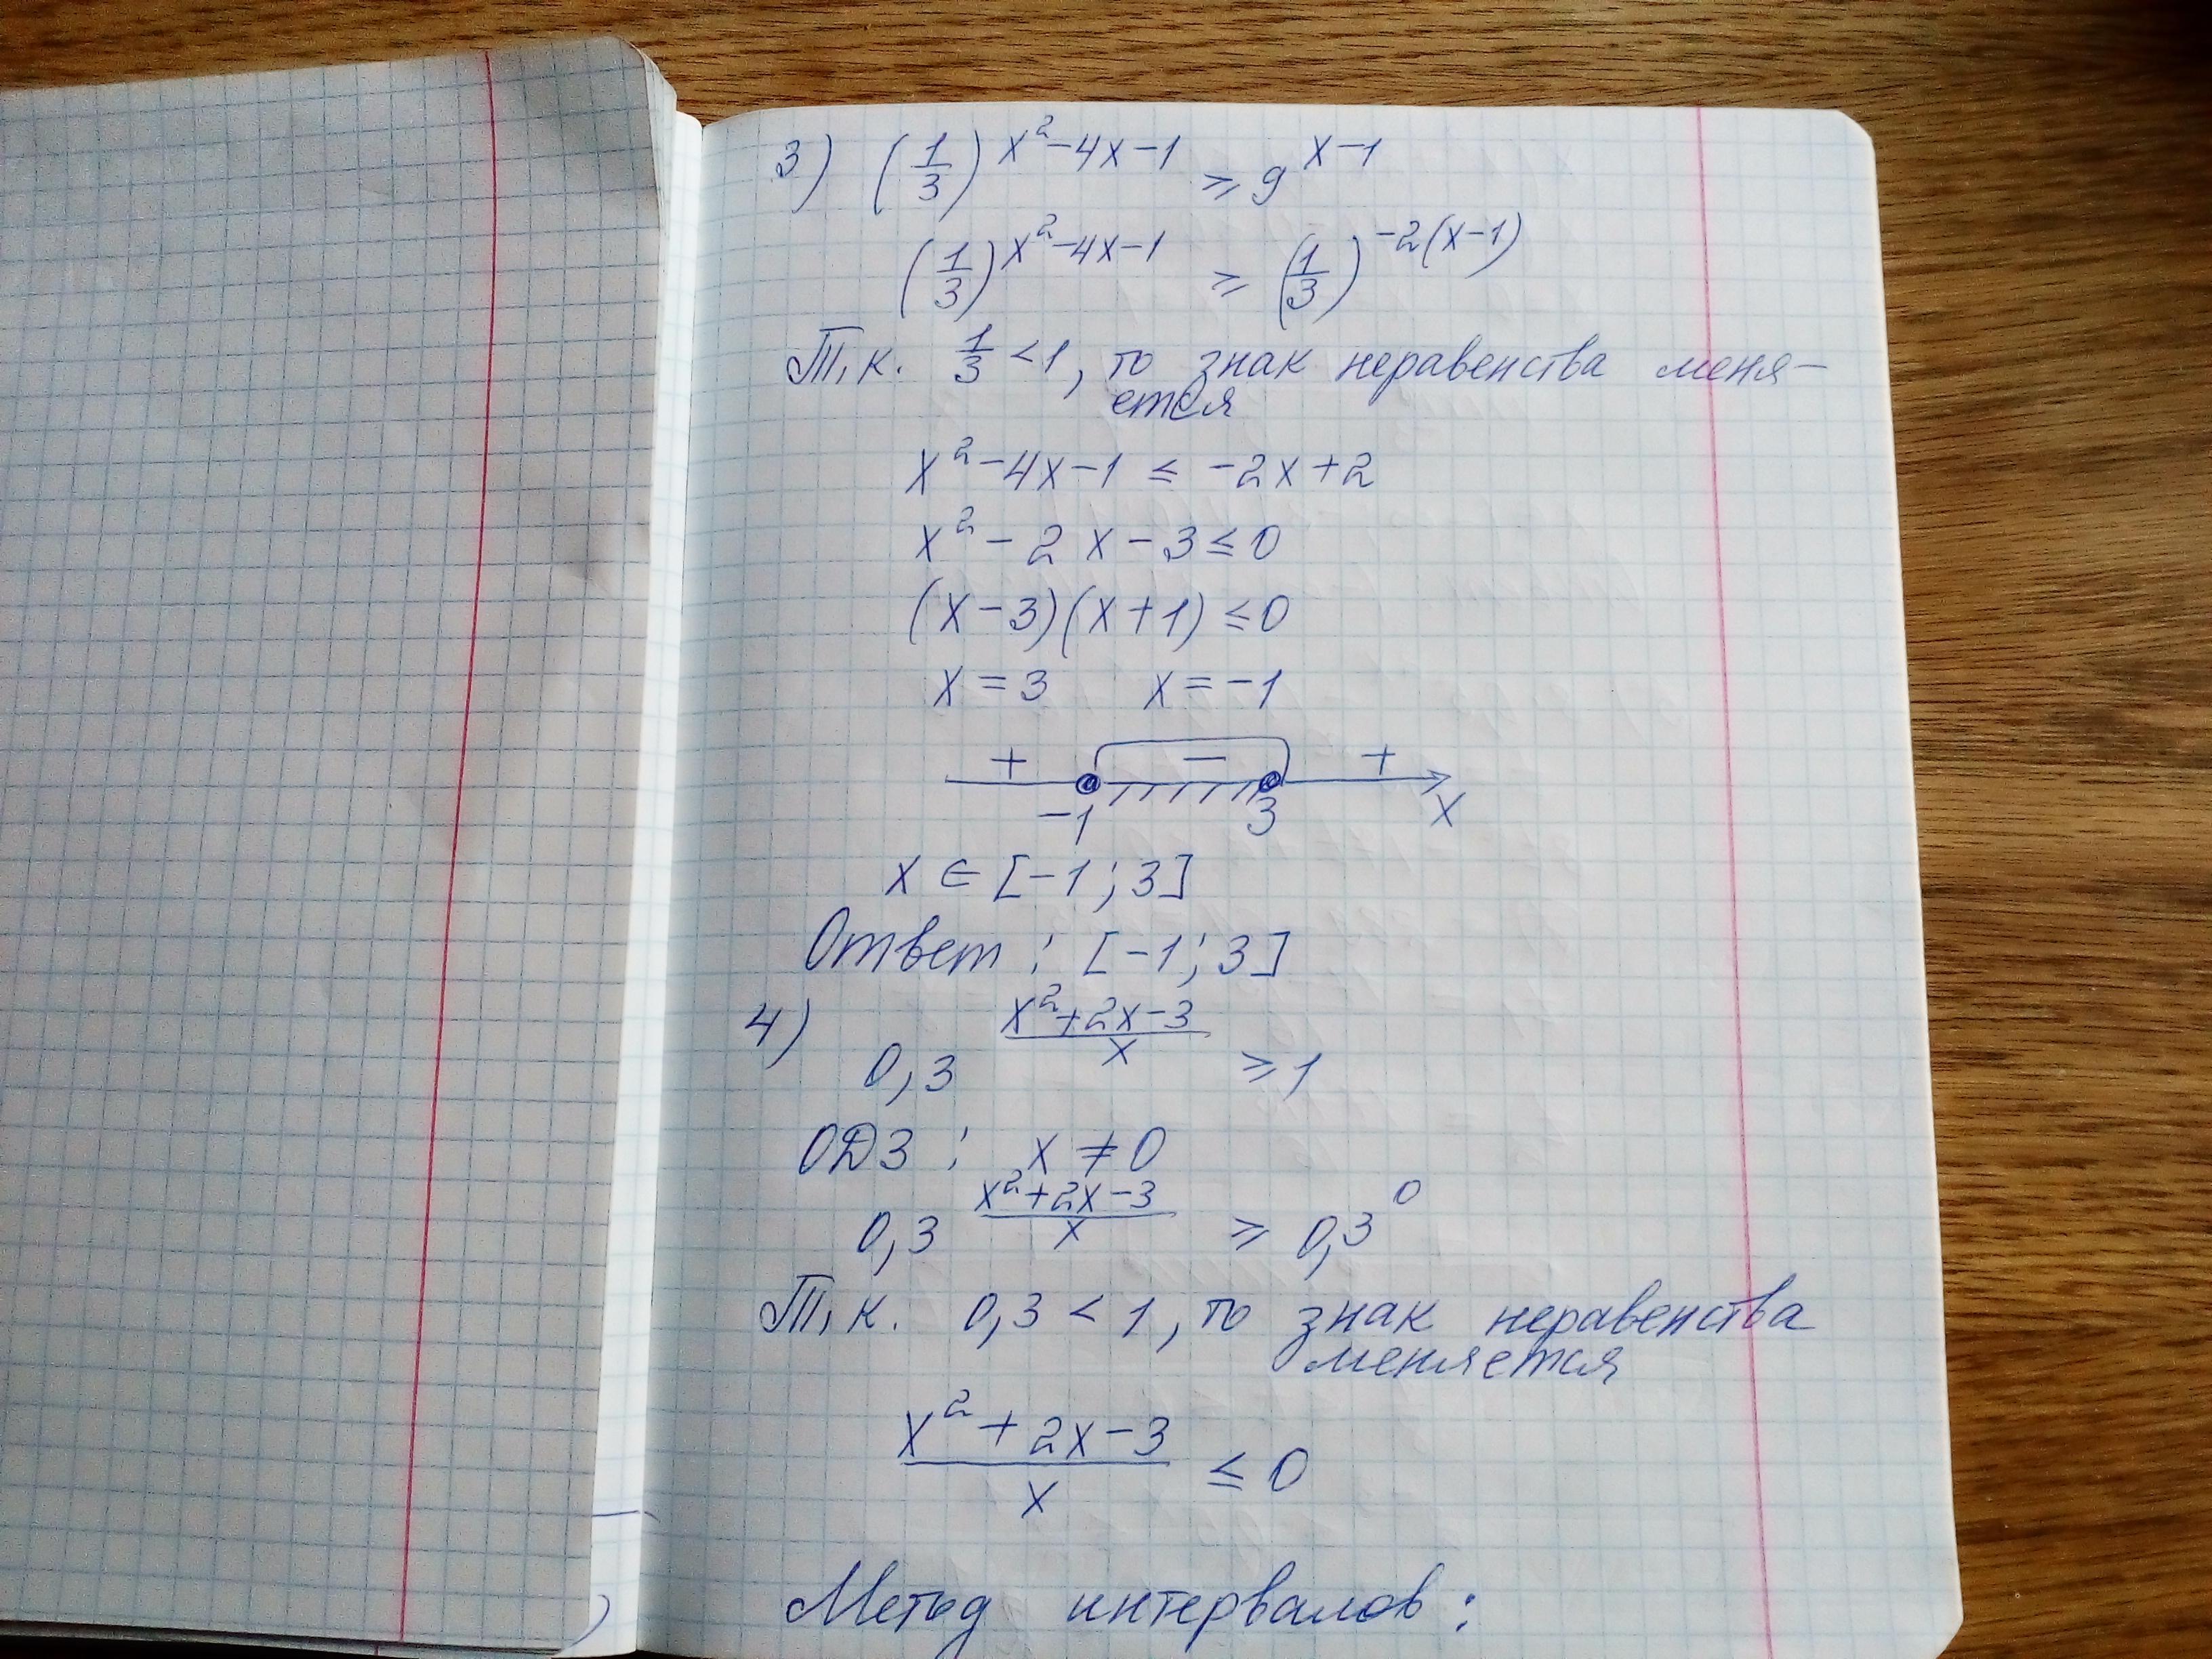 3) (1/3)^(x²-4x-1) ≥ 9^(x-1)
(1/3)^(x²-4x-1) ≥ (1/3)^(-2(x-1))
Т.к. 1/3 < 1, то знак неравенства меня-
ется
x²-4x-1 ≤ -2x+2
x²-2x-3 ≤ 0
(x-3)(x+1) ≤ 0
x = 3 x = -1
+ - +
-1 3 x
x ∈ [-1; 3]
Ответ: [-1; 3]
4) 0,3^((x²+2x-3)/x) ≥ 1
ОДЗ: x ≠ 0
0,3^((x²+2x-3)/x) ≥ 0,3^0
Т.к. 0,3 < 1, то знак неравенства
меняется
(x²+2x-3)/x ≤ 0
Метод интервалов: